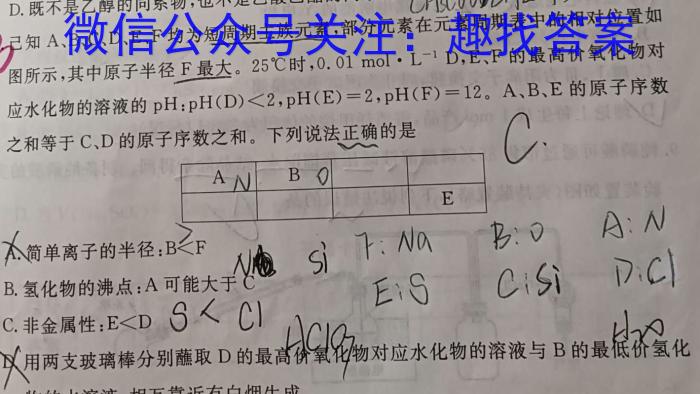 D.既不是乙醇的同系物,也不是乙酸
微信公众号关注:趣找答案
已知A、B、C、D、E、F均为短周期主族元素,部分元素在元素周期表中的相对位置如
图所示,其中原子半径F最大。25℃时,0.01 mol·L⁻¹ D、E、F的最高价氧化物对
应水化物的溶液的pH:pH(D)<2,pH(E)=2,pH(F)=12。A、B、E的原子序数
之和等于C、D的原子序数之和。下列说法正确的是
C.
A N B O
E
A.简单离子的半径:B<F
>
F:Na B:O A:N
Si
B.氢化物的沸点:A可能大于C
E:S C:Si D:Cl
C.非金属性:E<D S < Cl
HClO₃
D.用两支玻璃棒分别蘸取D的最高价氧化物对应水化物的溶液与B的最低价氢化
物的水溶液,相互靠近有白烟生成